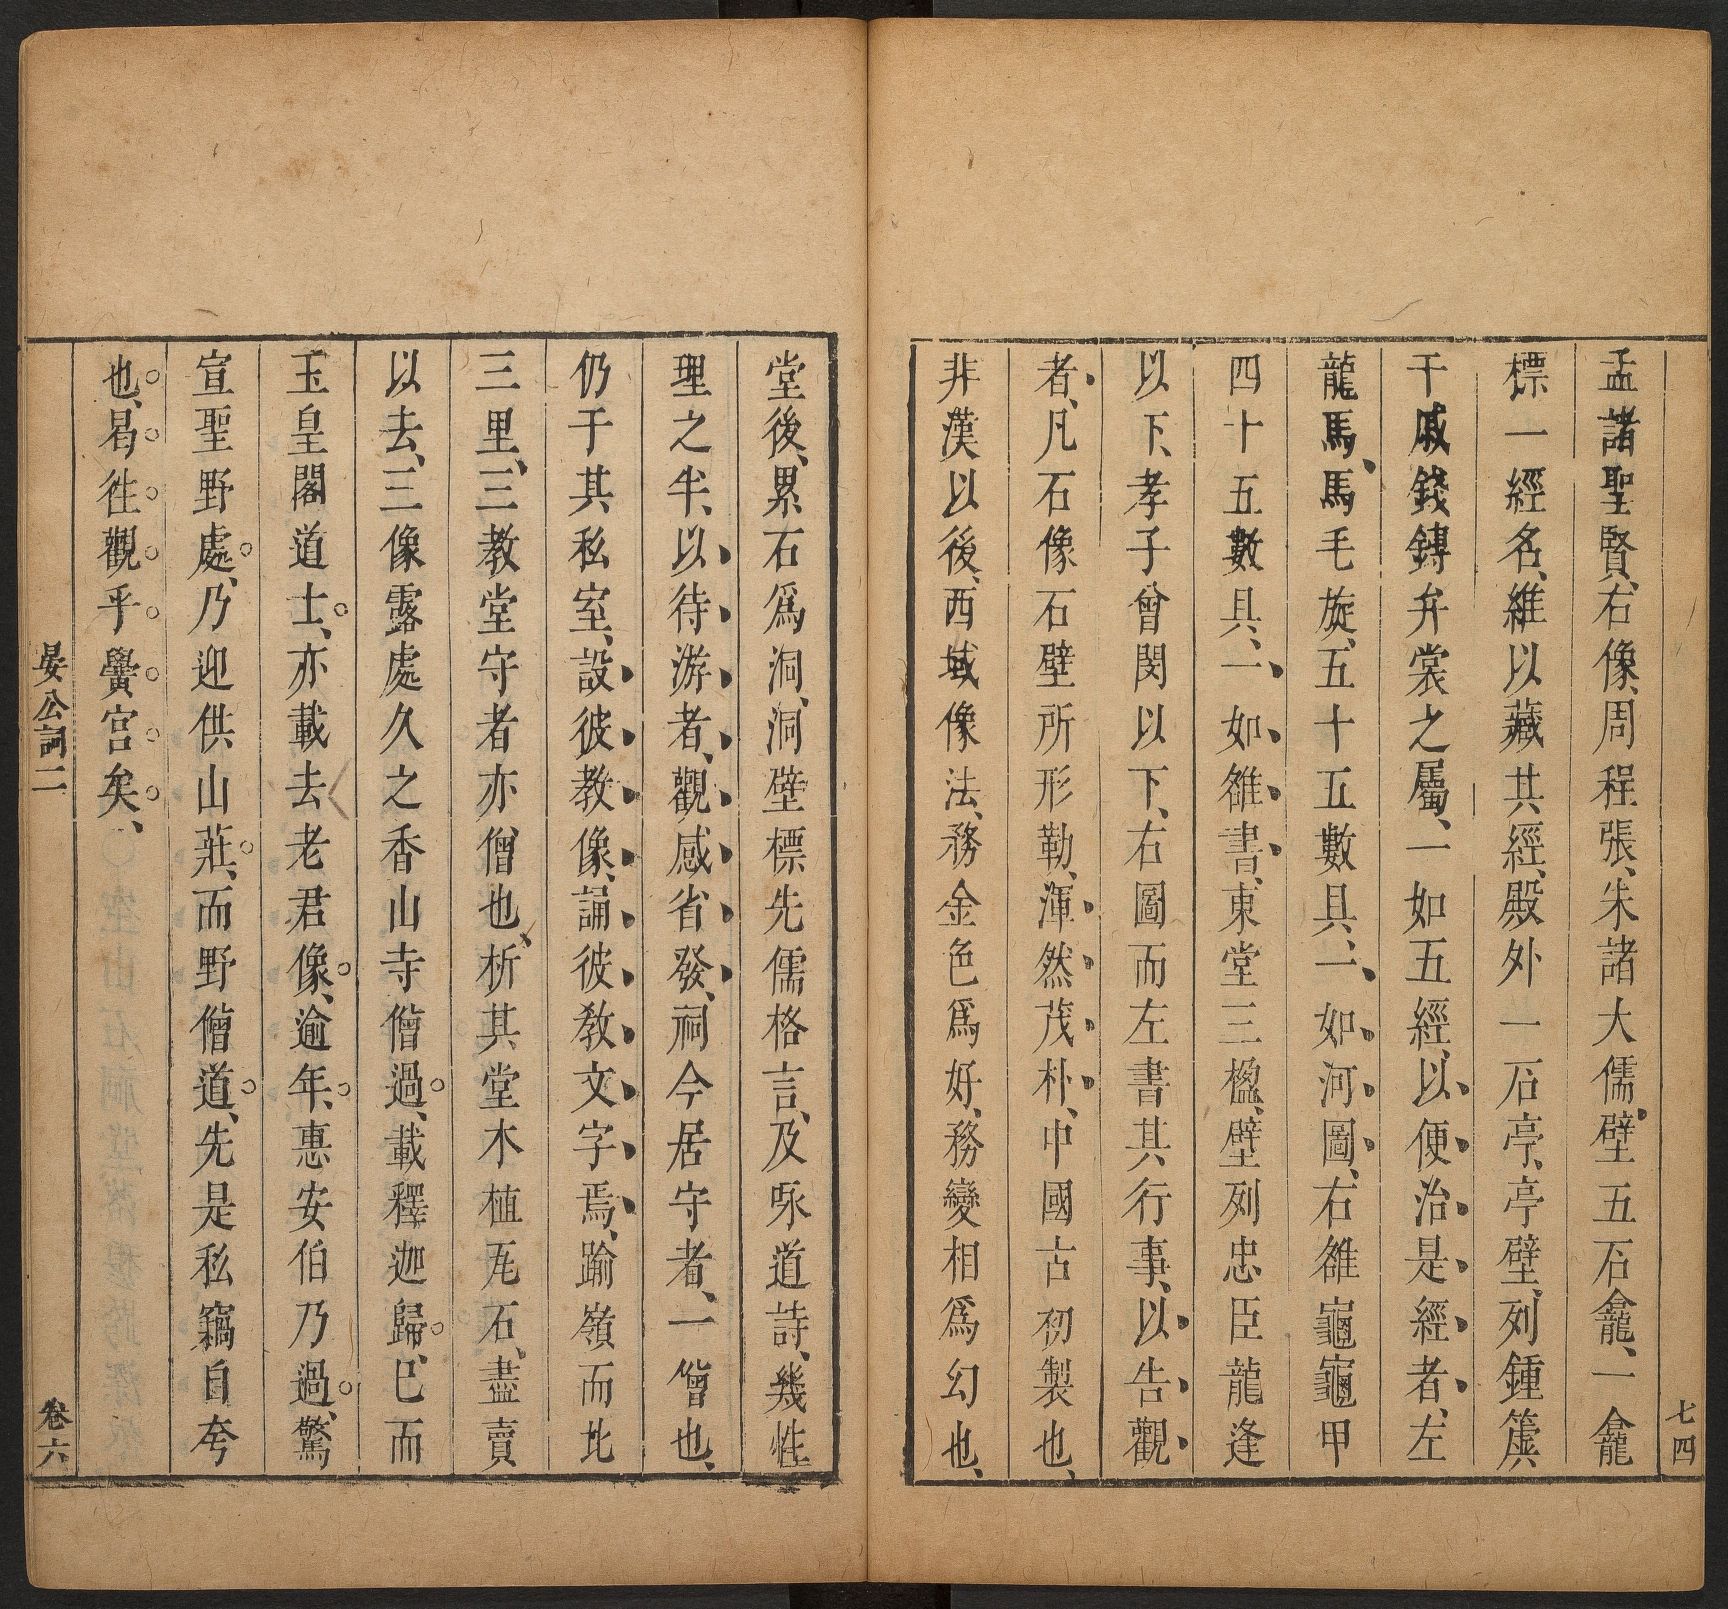 孟諸聖賢、右像、周程張、朱諸大儒、壁五石龕、一龕
標一經名、維以藏其經、殿外一石亭、亭壁、列鍾簴
干戚錢鎛弁裳之屬、一如五經、以便治是經者、左
龍馬、馬毛旋、五十五數具、一如河圖、右雒龜、龜甲
四十五數具、一如雒書、東堂三楹、壁列忠臣龍逢
以下、孝子曾閔以下、右圖而左書其行事、以告觀
者、凡石像石壁所形勒、渾然茂朴、中國古初製也、
非漢以後、西域像法、務金色爲好、務變相爲幻也、
七四
堂後、累石爲洞、洞壁標先儒格言、及咏道詩、幾性
理之半、以待游者、觀感省發、祠今居守者、一僧也、
仍于其私室、設彼教像、誦彼教文字焉、踰嶺而北
三里、三教堂守者亦僧也、析其堂木植瓦石、盡賣
以去、三像露處久之香山寺僧過、載釋迦歸、已而
玉皇閣道士、亦載去老君像、逾年、惠安伯乃過、驚
宣聖野處、乃迎供山莊、而野僧道、先是私竊自夸
也、曷徃觀乎黌宮矣、
晏公祠二
卷六